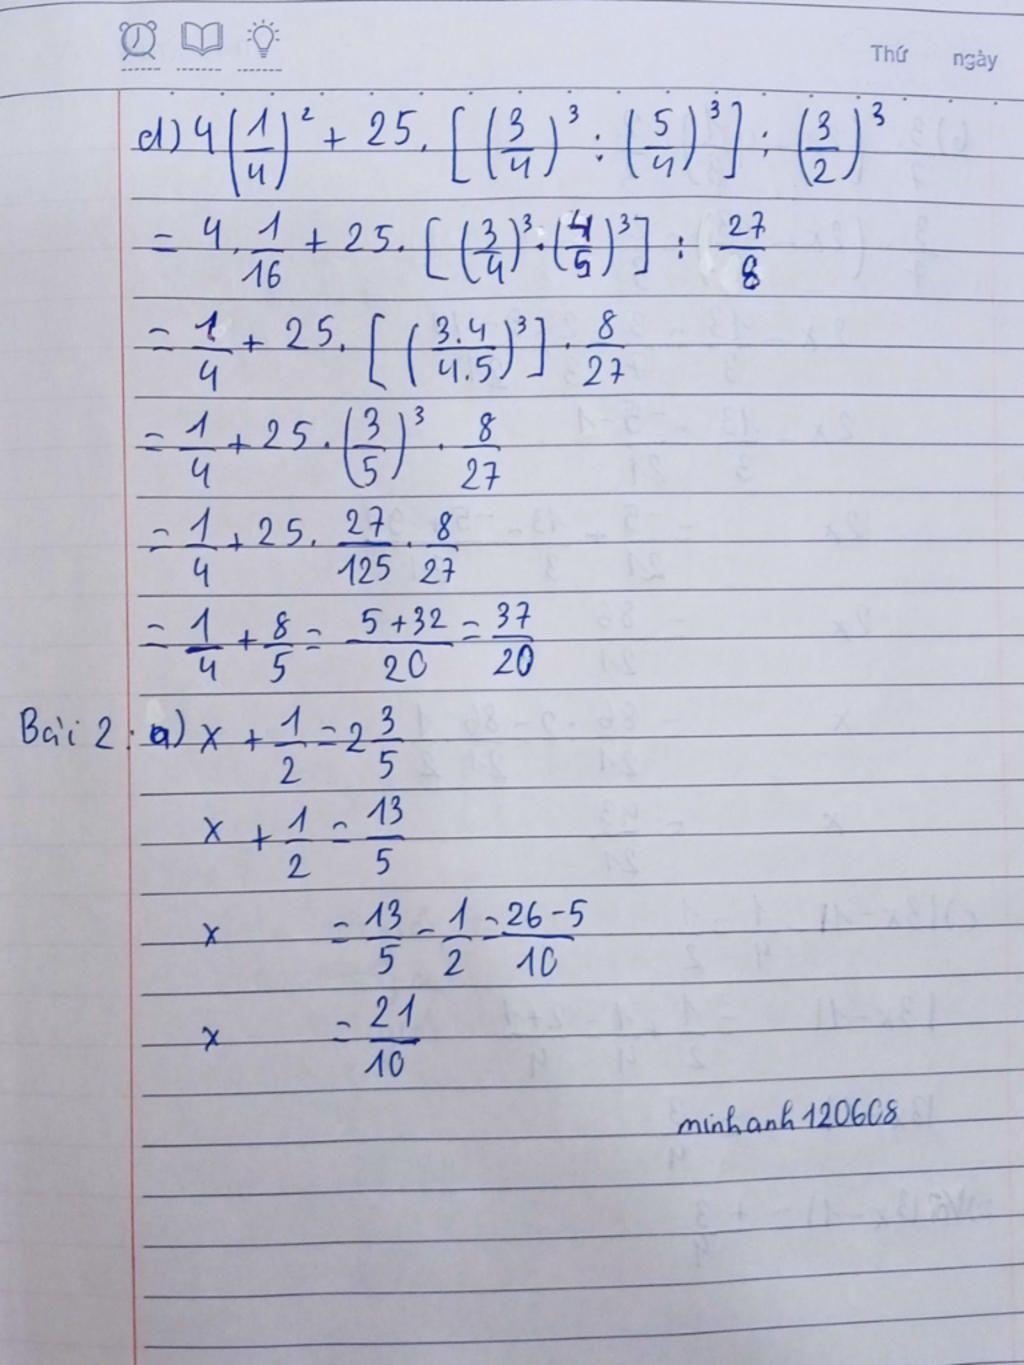 Thứ ngày
d) 4(1/4)² + 25 . [(3/4)³ : (5/4)³] : (3/2)³
= 4 . 1/16 + 25 . [(3/4)³ . (4/5)³] : 27/8
= 1/4 + 25 . [(3.4/4.5)³] . 8/27
= 1/4 + 25 . (3/5)³ . 8/27
= 1/4 + 25 . 27/125 . 8/27
= 1/4 + 8/5 = 5+32/20 = 37/20
Bài 2: a) x + 1/2 = 2 3/5
x + 1/2 = 13/5
x = 13/5 - 1/2 = 26-5/10
x = 21/10
minhanh120608